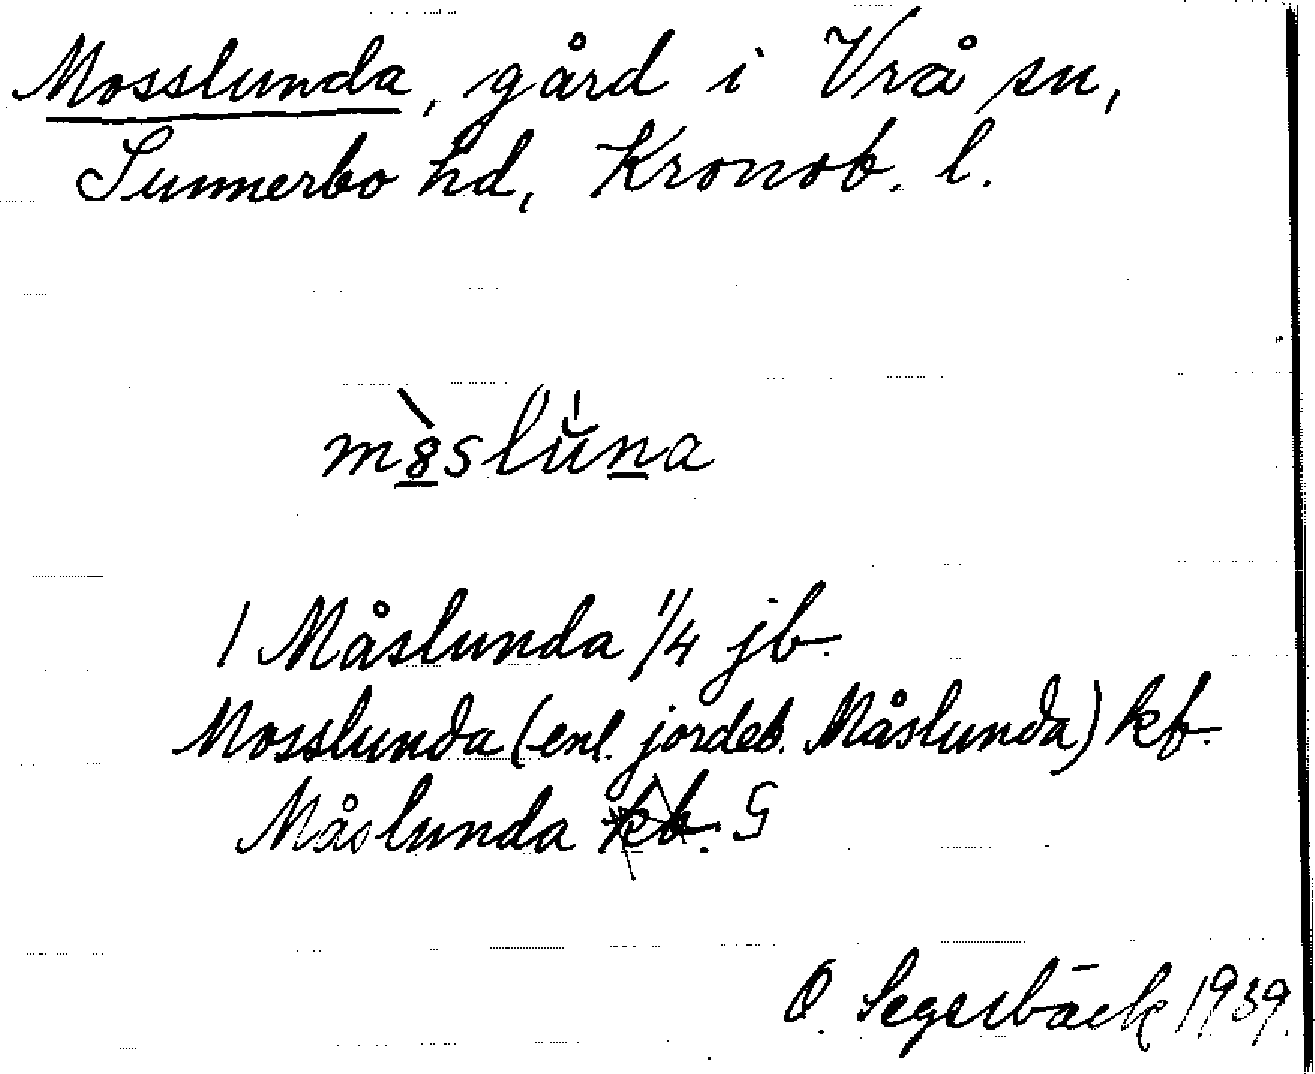 Mosslunda, gård i Vrå sn,
Sunnerbo hd, Kronob. l.
m8̀slŭ'na
1 Måslunda 1/4 jb.
Mosslunda (enl. jordeb. Måslunda) kb.
Måslunda kb. G
O. Segerbäck 1939.